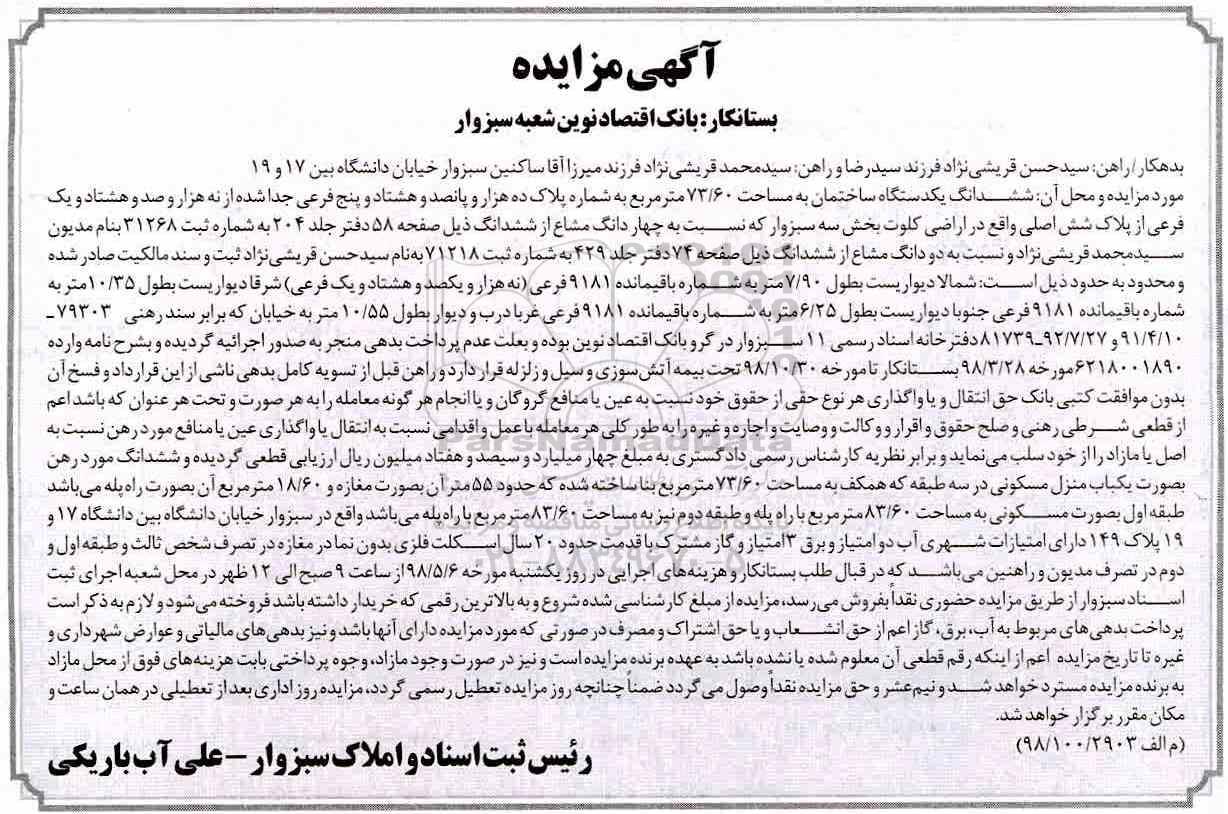 آگهی مزایده
بستانکار: بانک اقتصاد نوین شعبه سبزوار
بدهکار/راهن: سیدحسن قریشی‌نژاد فرزند سیدرضا و راهن: سیدمحمد قریشی‌نژاد فرزند میرزا آقا ساکنین سبزوار خیابان دانشگاه بین ۱۷ و ۱۹
مورد مزایده و محل آن: ششدانگ یکدستگاه ساختمان به مساحت ۷۳/۶۰ متر مربع به شماره پلاک ده هزار و پانصد و هشتاد و پنج فرعی جدا شده از نه هزار و صد و هشتاد و یک
فرعی از پلاک شش اصلی واقع در اراضی کلوت بخش سه سبزوار که نسبت به چهار دانگ مشاع از ششدانگ ذیل صفحه ۵۸ دفتر جلد ۲۰۴ به شماره ثبت ۳۱۲۶۸ بنام مدیون
سیدمحمد قریشی‌نژاد و نسبت به دو دانگ مشاع از ششدانگ ذیل صفحه ۷۴ دفتر جلد ۴۲۹ به شماره ثبت ۷۱۲۱۸ به‌نام سیدحسن قریشی‌نژاد ثبت و سند مالکیت صادر شده
و محدود به حدود ذیل است: شمالا دیواریست بطول ۷/۹۰ متر به شماره باقیمانده ۹۱۸۱ فرعی (نه هزار و یکصد و هشتاد و یک فرعی) شرقا دیواریست بطول ۱۰/۳۵ متر به
شماره باقیمانده ۹۱۸۱ فرعی جنوبا دیواریست بطول ۶/۲۵ متر به شماره باقیمانده ۹۱۸۱ فرعی غربا درب و دیوار بطول ۱۰/۵۵ متر به خیابان که برابر سند رهنی ۷۹۳۰۳ـ
۹۱/۴/۱۰ و ۹۲/۷/۲۷ـ۸۱۷۳۹ دفترخانه اسناد رسمی ۱۱ سبزوار در گرو بانک اقتصاد نوین بوده و بعلت عدم پرداخت بدهی منجر به صدور اجرائیه گردیده و بشرح نامه وارده
۶۲۱۸۰۰۱۸۹۰ مورخه ۹۸/۳/۲۸ بستانکار تا مورخه ۹۸/۱۰/۳۰ تحت بیمه آتش‌سوزی و سیل و زلزله قرار دارد و راهن قبل از تسویه کامل بدهی ناشی از این قرارداد و فسخ آن
بدون موافقت کتبی بانک حق انتقال و یا واگذاری هر نوع حقی از حقوق خود نسبت به عین یا منافع گروگان و یا انجام هر گونه معامله را به هر صورت و تحت هر عنوان که باشد اعم
از قطعی شرطی رهنی و صلح حقوق و اقرار و وکالت و وصایت و اجاره و غیره را به طور کلی هر معامله یا عمل و اقدامی نسبت به انتقال یا واگذاری عین یا منافع مورد رهن نسبت به
اصل یا مازاد را از خود سلب می‌نماید و برابر نظریه کارشناس رسمی دادگستری به مبلغ چهار میلیارد و سیصد و هفتاد میلیون ریال ارزیابی قطعی گردیده و ششدانگ مورد رهن
بصورت یکباب منزل مسکونی در سه طبقه که همکف به مساحت ۷۳/۶۰ متر مربع بنا ساخته شده که حدود ۵۵ متر آن بصورت مغازه و ۱۸/۶۰ متر مربع آن بصورت راه پله می‌باشد
طبقه اول بصورت مسکونی به مساحت ۸۳/۶۰ متر مربع با راه پله و طبقه دوم نیز به مساحت ۸۳/۶۰ متر مربع با راه پله می‌باشد واقع در سبزوار خیابان دانشگاه بین دانشگاه ۱۷ و
۱۹ پلاک ۱۴۹ دارای امتیازات شهری آب دو امتیاز و برق ۳ امتیاز و گاز مشترک با قدمت حدود ۲۰ سال اسکلت فلزی بدون نما در مغازه در تصرف شخص ثالث و طبقه اول و
دوم در تصرف مدیون و راهنین می‌باشد که در قبال طلب بستانکار و هزینه‌های اجرایی در روز یکشنبه مورخه ۹۸/۵/۶ از ساعت ۹ صبح الی ۱۲ ظهر در محل شعبه اجرای ثبت
اسناد سبزوار از طریق مزایده حضوری نقداً بفروش می‌رسد، مزایده از مبلغ کارشناسی شده شروع و به بالاترین رقمی که خریدار داشته باشد فروخته می‌شود و لازم به ذکر است
پرداخت بدهی های مربوط به آب، برق، گاز اعم از حق انشعاب و یا حق اشتراک و مصرف در صورتی که مورد مزایده دارای آنها باشد و نیز بدهی‌های مالیاتی و عوارض شهرداری و
غیره تا تاریخ مزایده اعم از اینکه رقم قطعی آن معلوم شده یا نشده باشد به عهده برنده مزایده است و نیز در صورت وجود مازاد، وجوه پرداختی بابت هزینه‌های فوق از محل مازاد
به برنده مزایده مسترد خواهد شد و نیم‌عشر و حق مزایده نقداً وصول می گردد ضمناً چنانچه روز مزایده تعطیل رسمی گردد، مزایده روز اداری بعد از تعطیلی در همان ساعت و
مکان مقرر برگزار خواهد شد.
(م الف ۹۸/۱۰۰/۲۹۰۳)
رئیس ثبت اسناد و املاک سبزوار – علی آب باریکی
ParsNamadData